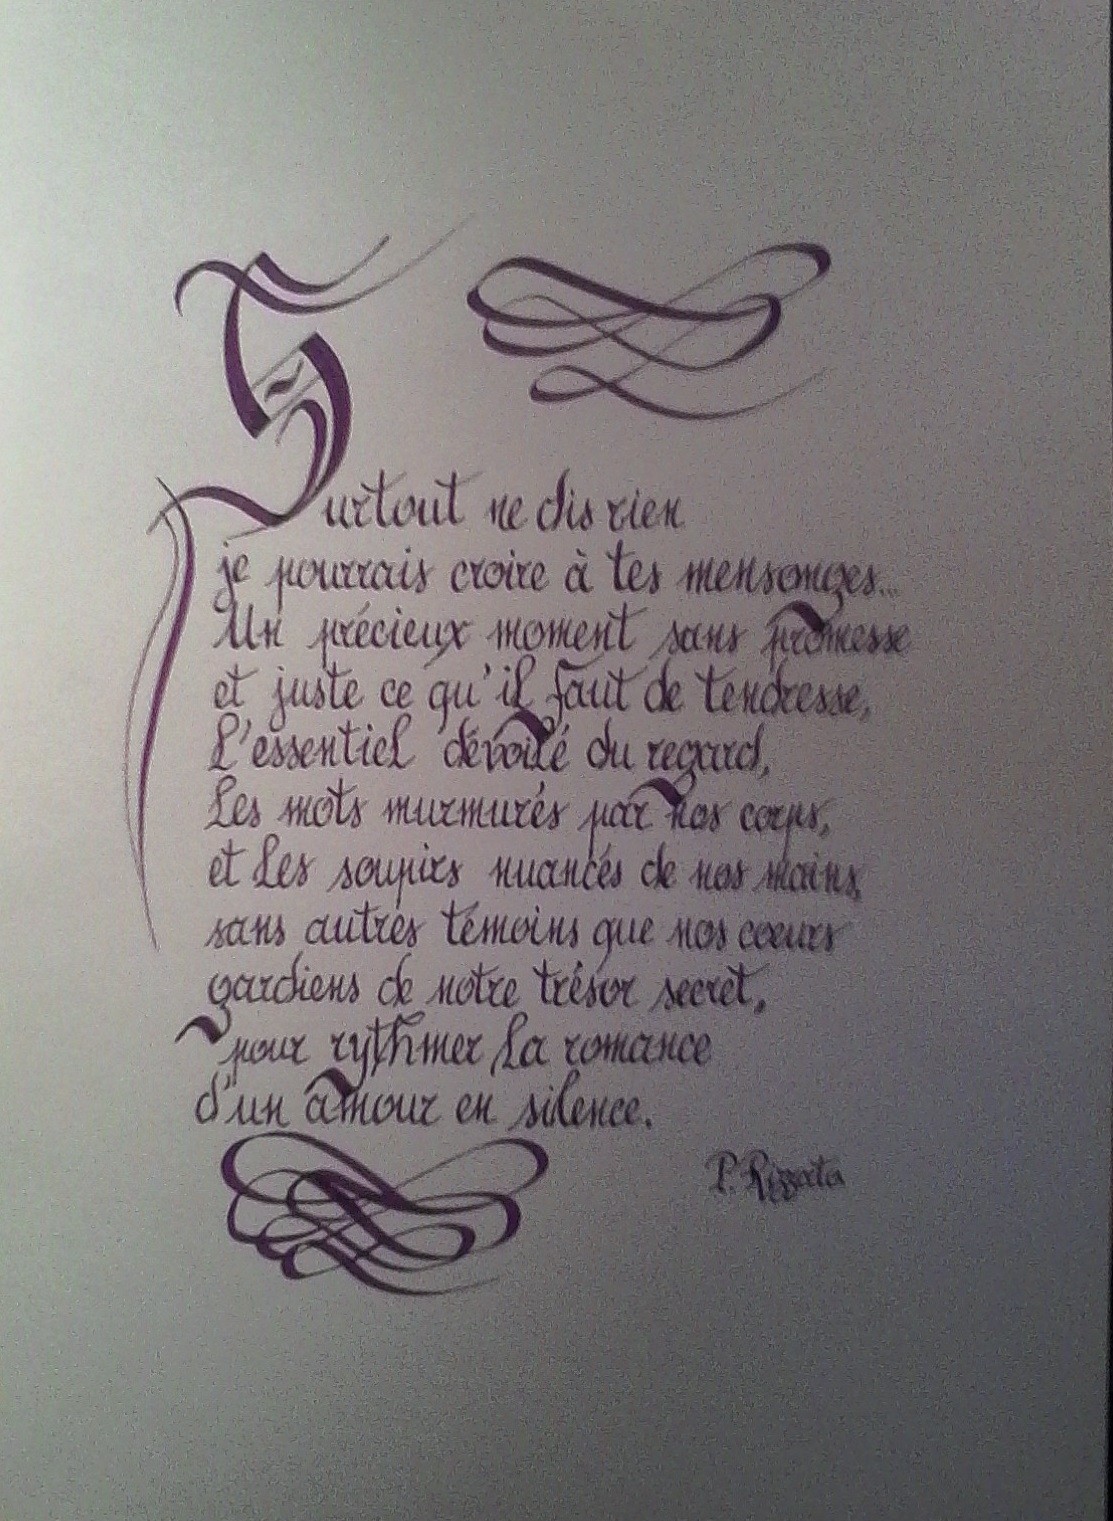 Surtout ne dis rien
je pourrais croire à tes mensonges...
Un précieux moment sans promesse
et juste ce qu'il faut de tendresse,
L'essentiel dévoilé du regard,
Les mots murmurés par nos corps,
et les soupirs nuancés de nos mains,
sans autres témoins que nos coeurs
gardiens de notre trésor secret,
pour rythmer la romance
d'un amour en silence.
P. Rizzata